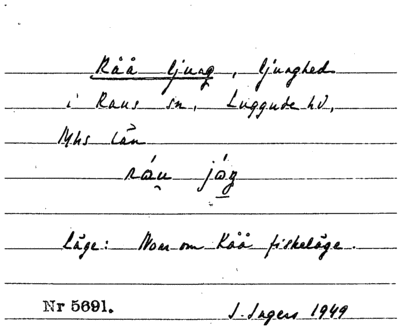 Råå ljung, ljunghed
i Raus sn, Luggude hd,
Mhs län
ráu jóg
Läge: Norr om Råå fiskeläge.
Nr 5691. J. Ingers 1949